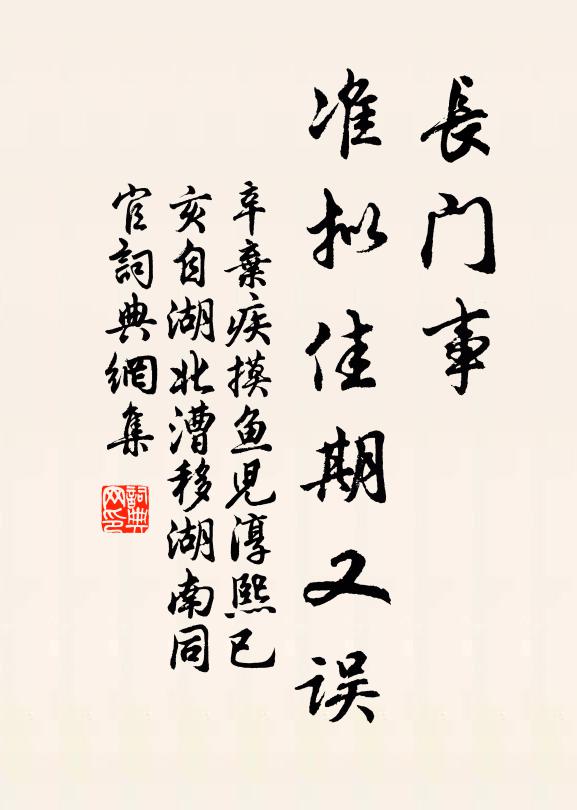 長門事
准拟佳期又误
辛棄疾摸鱼児淳熙已
亥自湖北漕移湖南同
官詞典網集
詞典网印